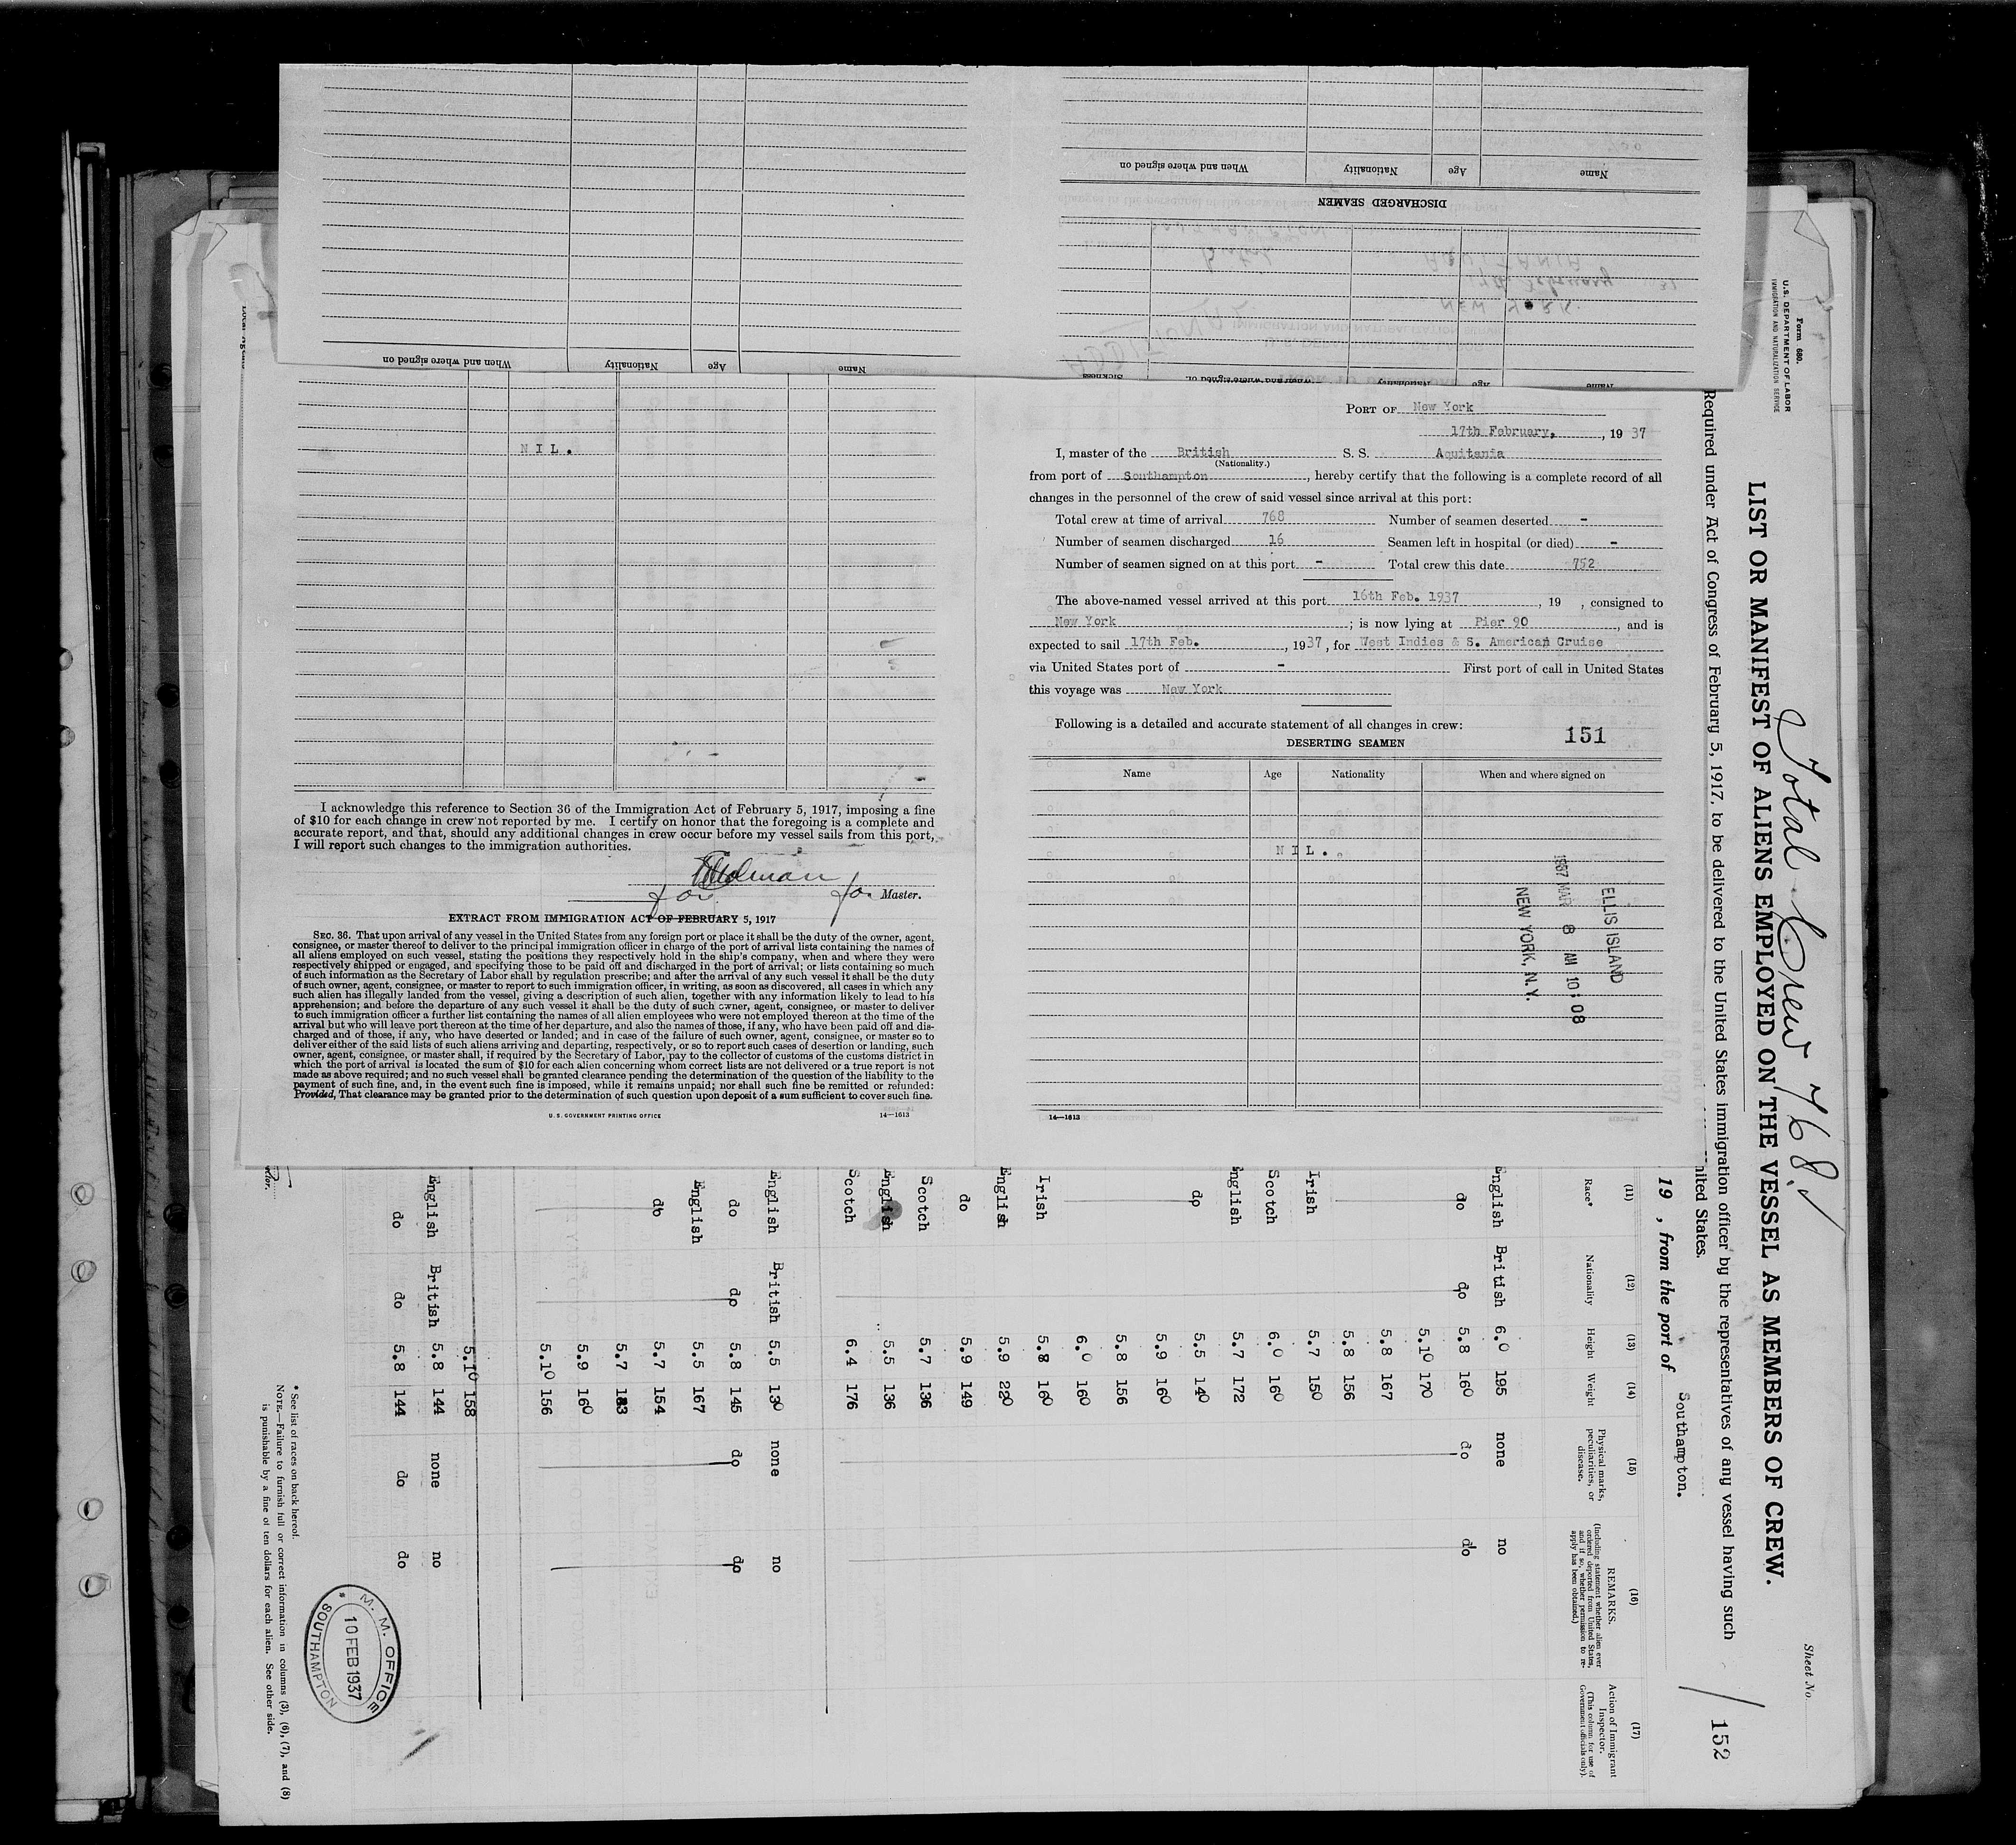 Name Age Nationality When and where signed on
DISCHARGED SEAMEN
Name Age Nationality When and where signed on
Name Age Nationality When and where signed on. Sickness
NIL.
I acknowledge this reference to Section 36 of the Immigration Act of February 5, 1917, imposing a fine
of $10 for each change in crew not reported by me. I certify on honor that the foregoing is a complete and
accurate report, and that, should any additional changes in crew occur before my vessel sails from this port,
I will report such changes to the immigration authorities.
for Master.
EXTRACT FROM IMMIGRATION ACT OF FEBRUARY 5, 1917
SEC. 36. That upon arrival of any vessel in the United States from any foreign port or place it shall be the duty of the owner, agent,
consignee, or master thereof to deliver to the principal immigration officer in charge of the port of arrival lists containing the names of
all aliens employed on such vessel, stating the positions they respectively hold in the ship's company, when and where they were
respectively shipped or engaged, and specifying those to be paid off and discharged in the port of arrival; or lists containing so much
of such information as the Secretary of Labor shall by regulation prescribe; and after the arrival of any such vessel it shall be the duty
of such owner, agent, consignee, or master to report to such immigration officer, in writing, as soon as discovered, all cases in which any
such alien has illegally landed from the vessel, giving a description of such alien, together with any information likely to lead to his
apprehension; and before the departure of any such vessel it shall be the duty of such owner, agent, consignee, or master to deliver
to such immigration officer a further list containing the names of all alien employees who were not employed thereon at the time of the
arrival but who will leave port thereon at the time of her departure, and also the names of those, if any, who have been paid off and dis-
charged and of those, if any, who have deserted or landed; and in case of the failure of such owner, agent, consignee, or master so to
deliver either of the said lists of such aliens arriving and departing, respectively, or so to report such cases of desertion or landing, such
owner, agent, consignee, or master shall, if required by the Secretary of Labor, pay to the collector of customs of the customs district in
which the port of arrival is located the sum of $10 for each alien concerning whom correct lists are not delivered or a true report is not
made as above required; and no such vessel shall be granted clearance pending the determination of the question of the liability to the
payment of such fine, and, in the event such fine is imposed, while it remains unpaid; nor shall such fine be remitted or refunded:
Provided, That clearance may be granted prior to the determination of such question upon deposit of a sum sufficient to cover such fine.
U. S. GOVERNMENT PRINTING OFFICE 14—1613
PORT OF New York
17th February, , 19 37
I, master of the British S. S. Aquitania
(Nationality.)
from port of Southampton , hereby certify that the following is a complete record of all
changes in the personnel of the crew of said vessel since arrival at this port:
Total crew at time of arrival 768 Number of seamen deserted -
Number of seamen discharged 16 Seamen left in hospital (or died) -
Number of seamen signed on at this port - Total crew this date 752
The above-named vessel arrived at this port 16th Feb. 1937 , 19 , consigned to
New York ; is now lying at Pier 90 , and is
expected to sail 17th Feb. , 1937, for West Indies & S. American Cruise
via United States port of - First port of call in United States
this voyage was New York
Following is a detailed and accurate statement of all changes in crew:
151
DESERTING SEAMEN
Name Age Nationality When and where signed on
NIL.
ELLIS ISLAND
1937 MAR 8 AM 10:08
NEW YORK, N.Y.
14—1613
Form 680.
U. S. DEPARTMENT OF LABOR
IMMIGRATION AND NATURALIZATION SERVICE
Sheet No.
Total Crew 768.
LIST OR MANIFEST OF ALIENS EMPLOYED ON THE VESSEL AS MEMBERS OF CREW.
152
Required under Act of Congress of February 5, 1917, to be delivered to the United States immigration officer by the representatives of any vessel having such
United States.
19 , from the port of Southampton.
(11) (12) (13) (14) (15) (16) (17)
Race* Nationality Height Weight Physical marks, peculiarities, or disease. REMARKS. (Including statement whether alien ever ordered deported from United States, and if so, whether permission to reapply has been obtained.) Action of Immigrant Inspector. (This column for use of Government officials only).
English British 6.0 195 none no
do do 5.8 160 do do
5.10 170
5.8 167
5.8 156
Irish 5.7 150
Scotch 6.0 160
English 5.7 172
do 5.5 140
5.9 160
5.8 156
6.0 160
Irish 5.8 160
English 5.9 220
do 5.9 149
Scotch 5.7 136
English 5.5 136
Scotch 6.4 176
English British 5.5 130 none no
do do 5.8 145 do do
English 5.5 167
do 5.7 154
5.7 183
5.9 160
5.10 156
5.10 158
English British 5.8 144 none no
do do 5.8 144 do do
* See list of races on back hereof.
NOTE.—Failure to furnish full or correct information in columns (3), (6), (7), and (8)
is punishable by a fine of ten dollars for each alien. See other side.
M. M. OFFICE
10 FEB 1937
SOUTHAMPTON